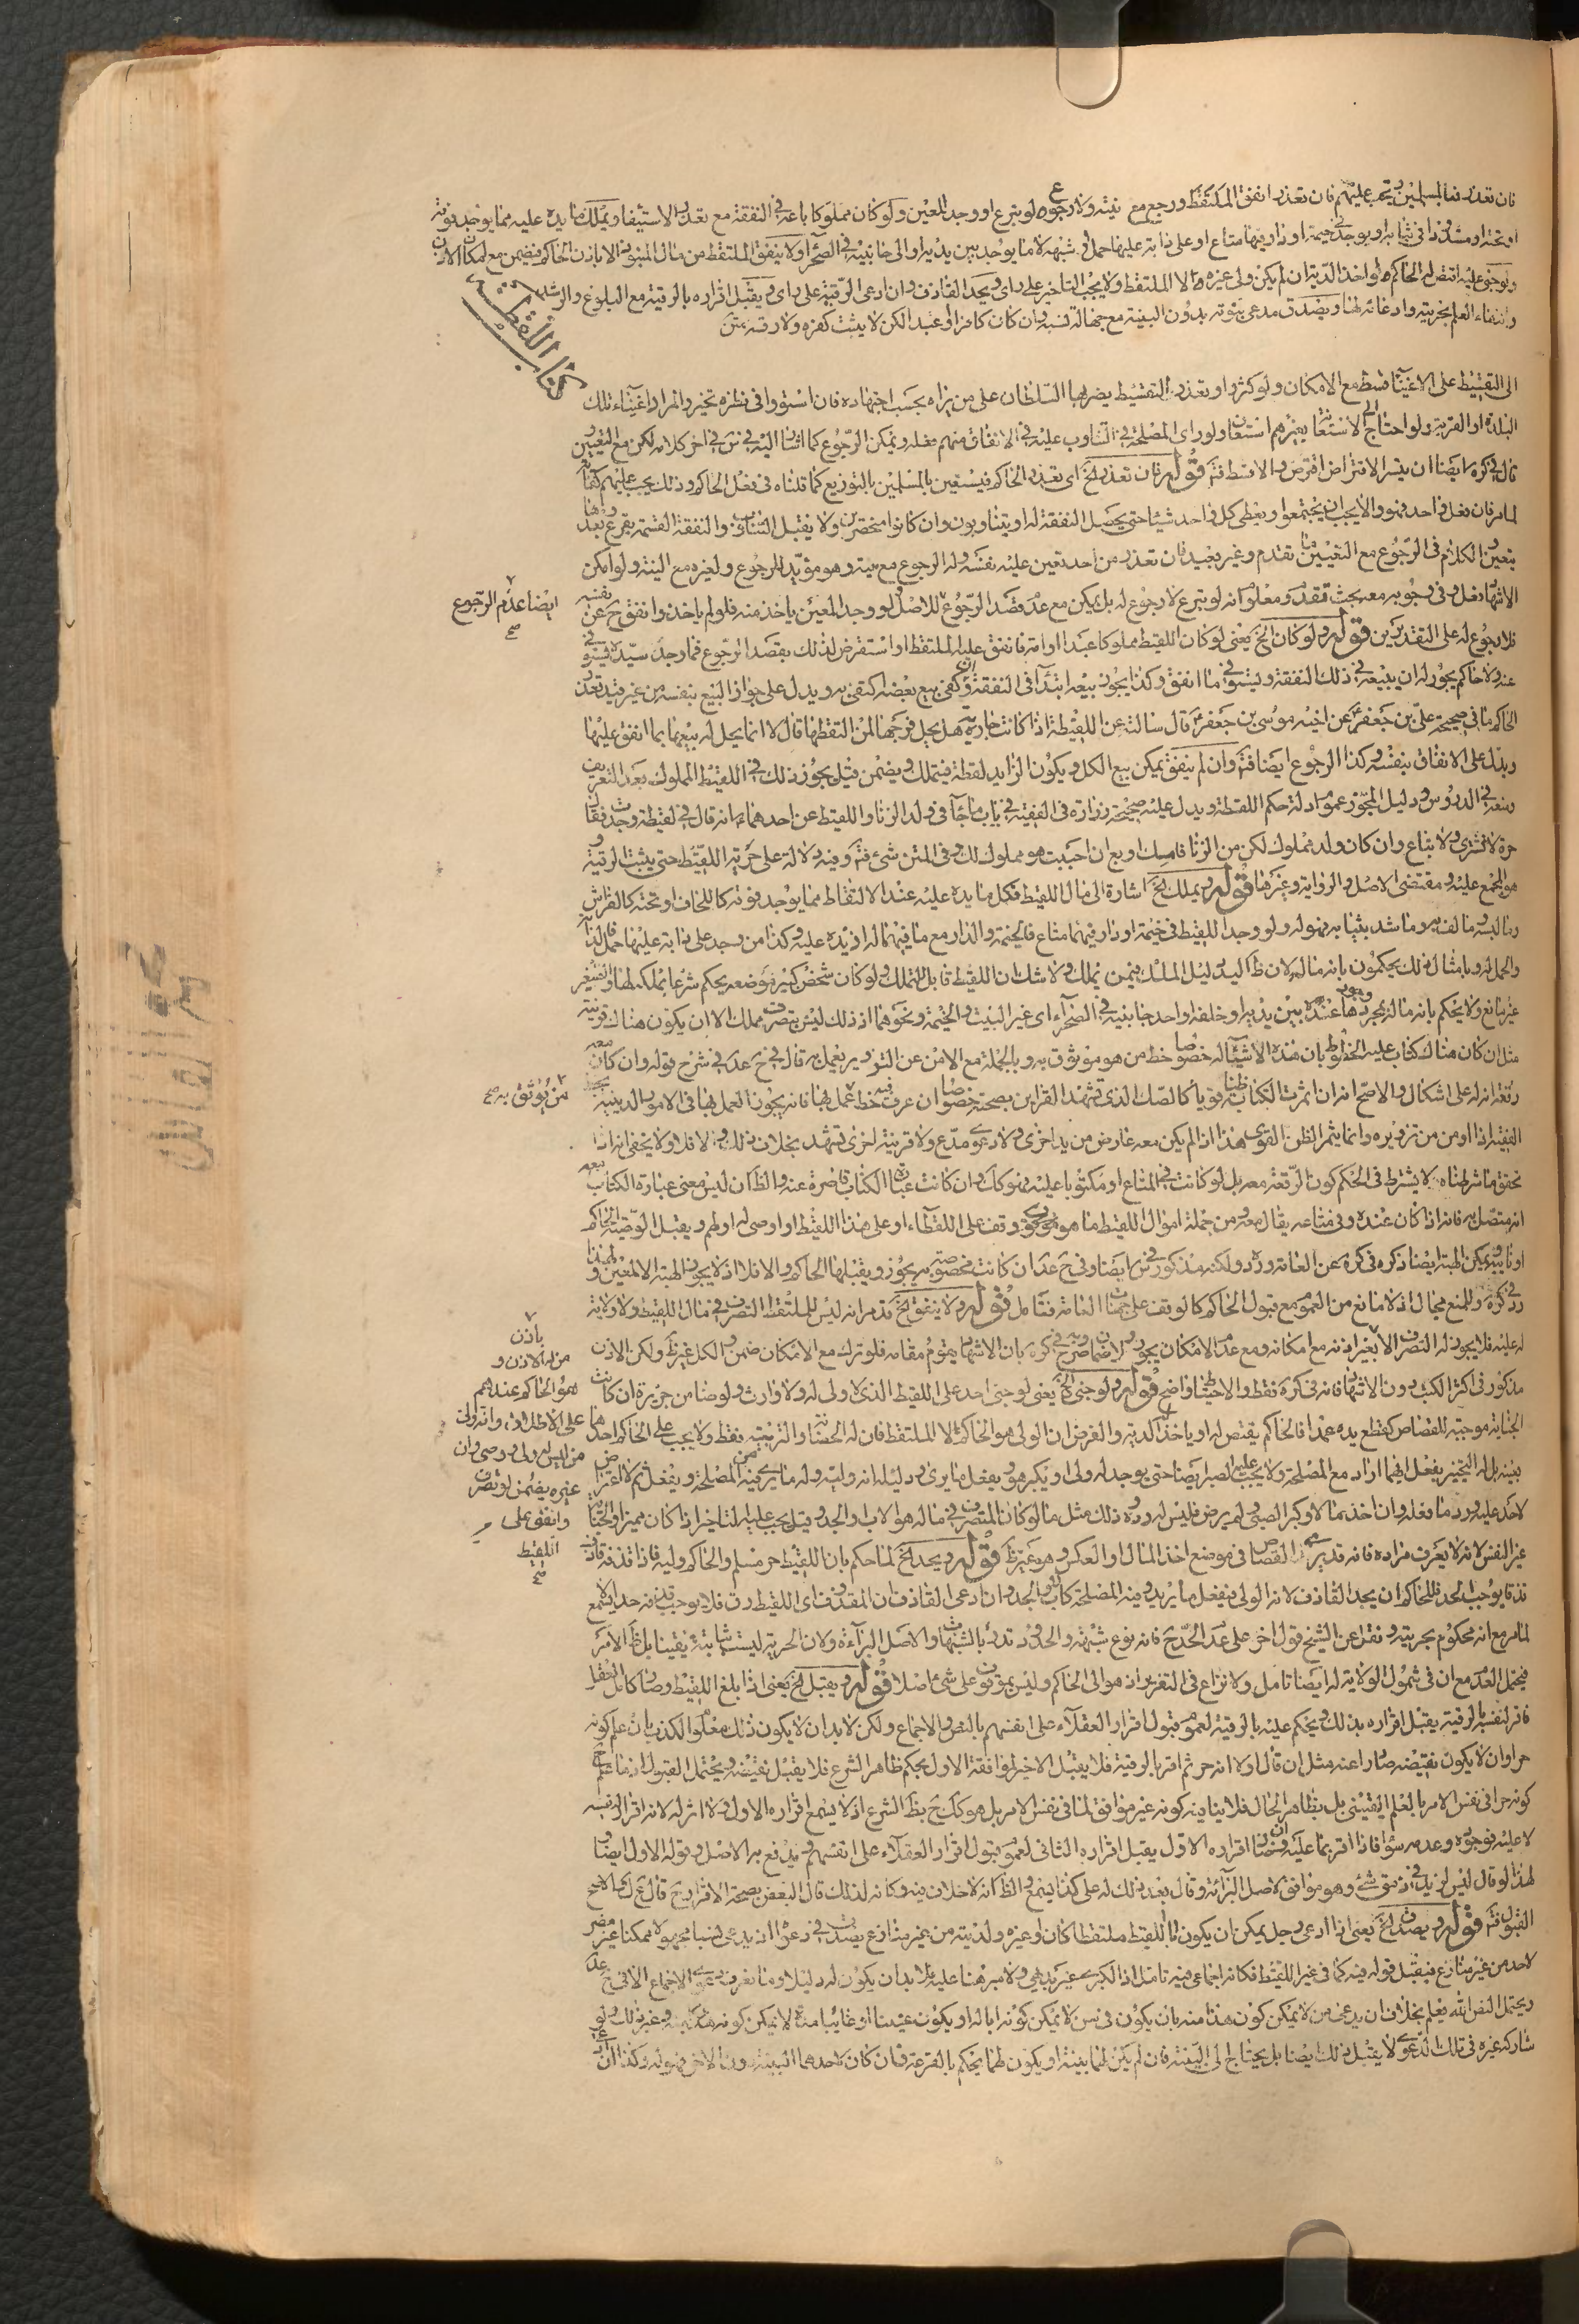 فان تعذر فالمسلمين ويجب عليهم فان تعذر انفق الملتقط ورجع مع نيته ولا رجوع لو تبرع او وجد المعين ولو كان مملوكا باعه في النفقة مع تعذر الاستيفاء ويملك ما يده عليه مما يوجد فوقه
او تحته او مشدودا في ثيابه او يوجد في خيمة او دار فيها متاع او على دابة عليها حمل وشبهه لا ما يوجد بين يديه او الى جانبيه في الصحراء ولا ينفق الملتقط من مال المنبوذ الا باذن الحاكم فيضمن مع امكان الاذن
ولو جني عليه اقتص له الحاكم او اخذ الدية ان لم يكن ولي غيره لا الملتقط ولا يجب التاخير على راي ويحد القاذف وان ادعى الرقية على راي ويقبل اقراره بالرقية مع البلوغ والرشد
وانتفاء العلم بحريته وادعائه لها ويصدق مدعي بنوته بدون البينة مع جهالة نسبه وان كان كافرا او عبدا لكن لا يثبت كفره ولا رقه متن
كتاب اللقطة
الى التقسيط على الاغنياء قسط مع الامكان ولو كثروا وتعذر التقسيط يضربها السلطان على من يراه بحسب اجتهاده فان استووا في نظره تخير والمراد اغنياء تلك
البلدة او القرية ولو احتاج الى الاستعانة بغيرهم استعان ولو راى المصلحة في التناوب عليه في الانفاق منهم فعله ويمكن الرجوع كما اشار اليه في س في اخر كلامه لكن مع التعيين
قال في كره ايضا ان تيسر الاقتراض اقترض والا قسط فتم قوله فان تعذر الخ اي تعذر الحاكم فيستعين بالمسلمين بالتوزيع كما قلناه في فعل الحاكم وذلك يجب عليهم كفاية
لما مر فان فعل واحد فهو والا يجب ان يجتمعوا ويعطي كل واحد شيئا حتى يحصل النفقة له او يتناوبون وان كانوا منحصرين ولا يقبل التناوب والنفقة القسمة يقرع وبعدها
يتعين والكلام في الرجوع مع التعيين ما تقدم وغير بعيد فان تعذر من احد تعين عليه نفسه وله الرجوع مع نيته وهو مؤيد للرجوع ولغيره مع النية ولو امكن
الاشهاد فعل وفي وجوبه معه بحث فقد ومعلوم انه لو تبرع لا رجوع له بل يمكن مع عدم قصد الرجوع للاصل ولو وجد المعين ياخذ منه فلو لم ياخذ وانفق ح عن نفسه
فلا رجوع له على التقديرين قوله ولو كان الخ يعني لو كان اللقيط مملوكا عبدا او امة فانفق عليه الملتقط او استقرض لذلك بقصد الرجوع فما وجد سيده ليستوفي
عنه ولا حاكم يجوز له ان يبيعه في ذلك النفقة ويستوفي ما انفق وكذا يجوز بيعه ابتداء في النفقة ولو كفى بيع بعضه اكتفى به ويدل على جواز البيع بنفسه من غير قيد تعذر
الحاكم ما في صحيحة علي بن جعفر عن اخيه موسى بن جعفر قال سالته عن اللقيطة اذا كانت جارية هل يحل فرجها لمن التقطها قال لا انما يحل له بيعها بما انفق عليها
ويدل على الانفاق بنفسه وكذا الرجوع ايضا فتم وان لم ينفق يمكن بيع الكل ويكون الزايد لقطة فيتملك ويضمن قيل يجوز ذلك في اللقيط المملوك بعد التعريف
منعه في الدروس ودليل المجوز عموم ادلة حكم اللقطة ويدل عليه صحيحة زرارة في الفقيه في باب ما جاء في ولد الزنا واللقيط عن احدهما انه قال في لقيطة وجدت فقال
حرة لا تشترى ولا تباع وان كان ولد مملوك لك من الزنا فامسك او بع ان احببت هو مملوك لك وفي المتن شيء فتم وفيه دلالة على حرية اللقيط حتى يثبت الرقية
هو المجمع عليه ومقتضى الاصل والرواية وغيرها قوله ويملك الخ اشارة الى مال اللقيط فكل ما يده عليه عند الالتقاط مما يوجد فوقه كاللحاف او تحته كالفراش
وما لبسه وما لف به وما شد بثيابه فهو له ولو وجد اللقيط في خيمة او دار فيهما متاع فالخيمة والدار مع ما فيهما له اذ يده عليه وكذا من وجد على دابة عليها حمل فالدابة
والحمل له وبامثال ذلك يحكمون بانه ماله لان ظاهر اليد دليل الملك فيمن يملك ولا شك ان اللقيط قابل للتملك ولو كان شخص كبير موضعه يحكم شرعا بملكه لها والصغير
غير مانع ولا يحكم بانه ماله بمجرد وجودها عنده بين يديه او خلفه او احد جانبيه في الصحراء اي غير البيت والخيمة ونحوهما اذ ذلك ليس بتصرف مملك الا ان يكون هناك قرينة
مثل ان كان هناك كتاب عليه الخطوط بان هذه الاشياء له خصوصا خط من هو موثوق به وبالجملة مع الامن عن التزوير يعمل به قال في ح عد في شرح قوله وان كان معه
رقعة انه له على اشكال والاصح انه ان اثمرت الكتابة ظنا قويا كالصك الذي تشهد القراين بصحته خصوصا ان عرف فيه خط عمل بها فانه يجوز العمل بها في الامور الدينية
الفقيه اذا امن من تزويره وانما يثمر الظن القوي هذا اذا لم يكن معه عارض من يد اخرى ولا دعوى مدع ولا قرينة اخرى تشهد بخلاف ذلك والا فلا ولا يخفى انه اذا
تحقق ما شرطناه لا يشترط في الحكم كون الرقعة معه بل لو كانت في المتاع او مكتوبا عليه فهو كك وان كانت عبارة الكتاب قاصرة عنه والظ ان ليس معنى عبارة الكتاب معه
انه متصل به فانه اذا كان عنده وفي متاعه يقال معه ومن جملة اموال اللقيط ما هو موقوف وقف على اللقطاء او على هذا اللقيط او اوصى له او لهم ويقبل الوصية الحاكم
او نايبه ويمكن الهبة ايضا ذكره في كره عن العامة ورده ولكنه مذكور في س ايضا وفي ح عد ان كانت مخصوصة به يجوز ويقبلها الحاكم والا فلا اذ لا يجوز الهبة الا لمعين ولهذا
رد في كره وللمنع مجال اذ لا مانع من العموم مع قبول الحاكم كالوقف على جهات العامة فتامل قوله ولا ينفق الخ قد مر انه ليس للملتقط التصرف في مال اللقيط ولا ولاية
له عليه فلا يجوز له التصرف الا بغير اذنه مع امكانه ومع عدم الامكان يجوز ولا ضمان وصرح به في كره بان الاشهاد يقوم مقامه فلو ترك مع الامكان ضمن والكل غير ظ ولكن الاذن
مذكور في اكثر الكتب دون الاشهاد فانه في كره فقط والاحتياط واضح قوله ولو جني الخ يعني لو جنى احد على اللقيط الذي لا ولي له ولا وارث ولو ضامن جريرة ان كانت
الجناية موجبة للقصاص كقطع يده عمدا فالحاكم يقتص له او ياخذ له الدية والغرض ان الولي هو الحاكم لا الملتقط فان له الحضانة والتربية فقط ولا يجب على الحاكم احدهما
بعينه بل له التخيير يفعل ايهما اراد مع المصلحة ولا يجب عليه الصبر ايضا حتى يوجد له ولي او يكبر هو ويفعل ما يرى ودليله انه وليه وله ما يرى فيه من المصلحة ويفعل ثم لا اعتراض
لاحد عليه ورد ما فعله وان اخذ مالا وكبر الصبي ولم يرض فليس له رده وذلك مثل ما لو كان المتصرف في ماله هو الاب والجد وقيل يجب عليه التاخير اذا كان مميزا والجناية
غير النفس لانه لا يعرف مراده فانه قد يريد القصاص في موضع اخذ المال او العكس وهو غير ظ قوله ويحد الخ لما حكم بان اللقيط حر مسلم والحاكم وليه فاذا قذفه قاذف
قذفا يوجب الحد للحاكم ان يحد القاذف لانه الولي فيفعل ما يريد وفيه المصلحة كالاب والجد وان ادعى القاذف ان المقذوف اي اللقيط رق فلا يوجب قذفه حدا لا يسمع
لما مر مع انه محكوم بحريته ونقل عن الشيخ قول اخر على عدم الحد ح فانه نوع شبهة والحدود تدرا بالشبهات والاصل البراءة ولان الحرية ليست ثابتة يقينا بل ظاهر الامر
فيحتمل العدم مع ان في شمول الولاية له ايضا تامل ولا نزاع في التعزير اذ هو الى الحاكم وليس بموقوف على شيء اصلا قوله ويقبل الخ يعني اذا بلغ اللقيط وصار كامل العقل
فاقر لنفسه بالرقية يقبل اقراره بذلك ويحكم عليه بالرقية لعموم قبول اقرار العقلاء على انفسهم بالنص والاجماع ولكن لا بد ان لا يكون ذلك معلوم الكذب بان علم كونه
حرا وان لا يكون نقيضه صادرا عنه مثل ان قال اولا انه حر ثم اقر بالرقية فلا يقبل الاخير لموافقة الاول بحكم ظاهر الشرع فلا يقبل نقيضه ويحتمل القبول اذ ما علم
كونه حرا في نفس الامر بالعلم اليقيني بل بظاهر الحال فلا ينافيه كونه غير موافق لما في نفس الامر بل هو كك ح بظ الشرع اذ لا يسمع اقراره الاول ولا اثر له لانه اقرار لنفسه
لا عليه فوجوده وعدمه سواء فاذا اقر بما عليه وان ضاد اقراره الاول يقبل اقراره الثاني لعموم قبول اقرار العقلاء على انفسهم ويدفع به الاصل وقوله الاول ايضا
لهذا لو قال ليس لزيد في ذمتي شيء وهو موافق لاصل البراءة وقال بعد ذلك له على كذا يسمع والظ انه لا خلاف فيه وكانه لذلك قال البعض بصحة الاقرار ح قال في ح الاصح
القبول فتم قوله ويصدق الخ يعني اذا ادعى رجل يمكن ان يكون ابا للقيط ملتقطا كان او غيره ولديته من غير منازع يصدق في دعواه ان يدعي نسبا مجهولا ممكنا غير مضر
لاحد من غير منازع فيقبل قوله فيه كما في غير اللقيط فكانه اجماعي وفيه تامل اذ الكبرى غير بديهي ولا مبرهنا عليه فلا بد ان يكون له دليلا وما نعرفه دعوى الاجماع الا في ح عد
ويحتمل النص الله يعلم بخلاف ان يدعي من لا يمكن كون هذا منه بان يكون في سن لا يمكن كونه ابا له او يكون عنينا او غايبا مدة لا يمكن كونه منه وغير ذلك ولو
شاركه غيره في تلك الدعوى لا يقبل ذلك ايضا بل يحتاج الى البينة فان لم يكن لهما بينة او يكون لهما يحكم بالقرعة فان كان لاحدهما البينة دون الاخر فهو له وكذا ان
ايضا عدم الرجوع
صح
من يوثق به صح
باذن
من له الاذن و
هو الحاكم عندهم
على الاطلاق وانه ولي
من ليس له ولي ووصي وان
غيره يضمن لو تصرف
وانفق على
اللقيط
صح